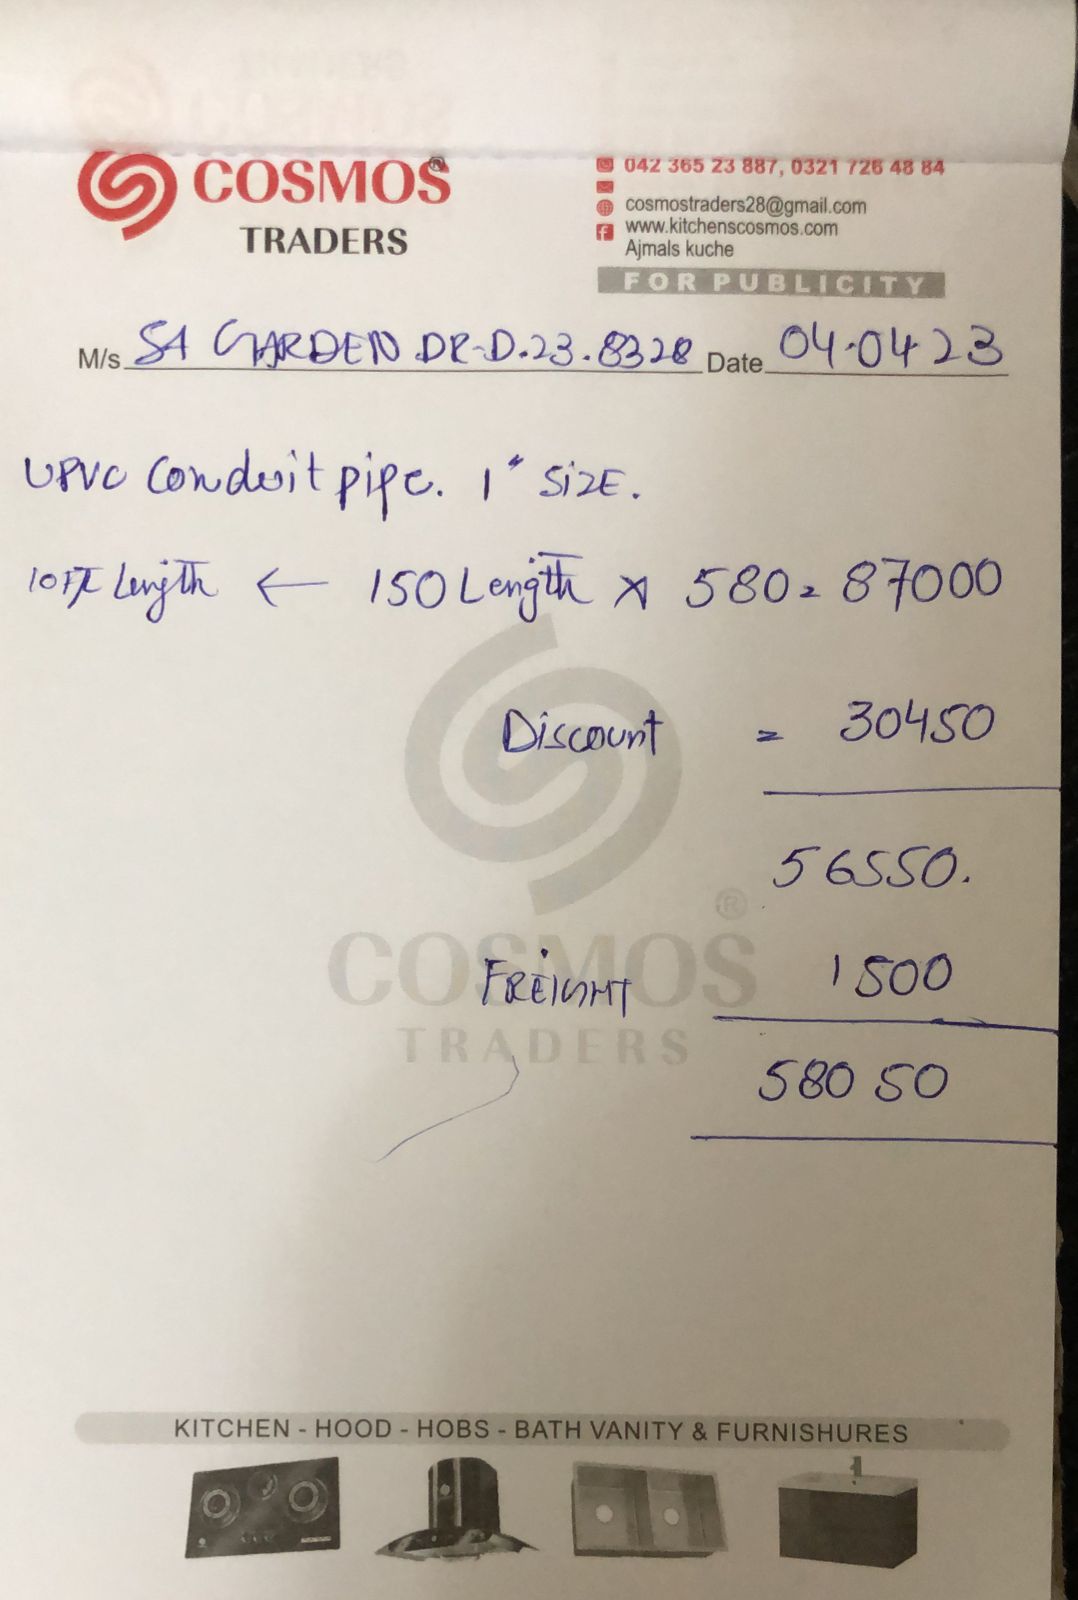 COSMOS®
TRADERS
042 365 23 887, 0321 726 48 84
cosmostraders28@gmail.com
www.kitchenscosmos.com
Ajmals kuche
FOR PUBLICITY
M/s SA GARDEN DR-D.23.8328 Date 04.04.23
UPVC Conduit pipe. 1" SIZE.
10Ft Length ← 150 Length x 580 = 87000
Discount = 30450
56550.
FREIGHT 1500
58050
COSMOS®
TRADERS
KITCHEN - HOOD - HOBS - BATH VANITY & FURNISHURES